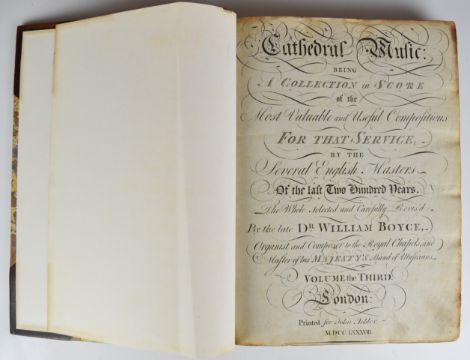 Cathedral Music:
BEING
A COLLECTION in SCORE
of the
Most Valuable and Useful Compositions
FOR THAT SERVICE,
BY THE
Several English Masters
Of the last Two Hundred Years.
The Whole Selected and Carefully Revis'd
By the late DR. WILLIAM BOYCE,
Organist and Composer to the Royal Chapels, and
Master of his MAJESTY'S Band of Musicians.
VOLUME the THIRD.
London:
Printed for John Ashley.
M.DCC.LXXXVIII.